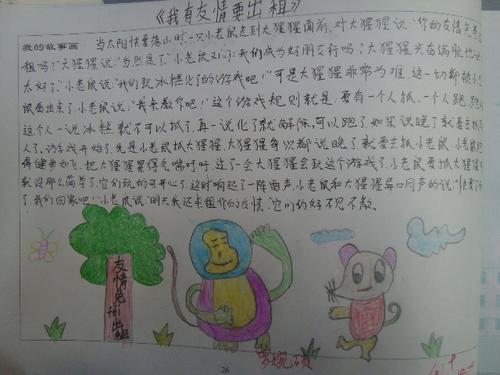 《我有友情要出租》
我的故事画 当太阳快要落山时,一只小老鼠走到大猩猩面前,对大猩猩说:“你的友情
租吗?”大猩猩说:“当然是了。”小老鼠又问:“我们成为好朋友行吗?大猩猩
太好了。”小老鼠说:“我们玩冰糕化了的游戏吧!”可是大猩猩非常为难,这一切都被小
鼠看出来了,小老鼠说:“我来教你吧!”这个游戏规则就是:要有一个人抓,一个人跑,
这个人一说冰糕就不可以抓了,再一说化了就解除,可以跑了,如果说晚了就要去抓
人了。游戏开始了,先是小老鼠抓大猩猩,大猩猩每次都说晚了,就要去抓小老鼠,小老鼠跑
得健步如飞,把大猩猩累得气喘吁吁,过了一会大猩猩会玩这个游戏了,小老鼠要抓大猩猩
就没那么简单了,它们玩的可开心了,这时响起了一阵雨声,小老鼠和大猩猩异口同声的说:“快
了,我们回家吧!”小老鼠说:“明天我还来租你的友情。”它们约好不见不散。
友情免
出租
26